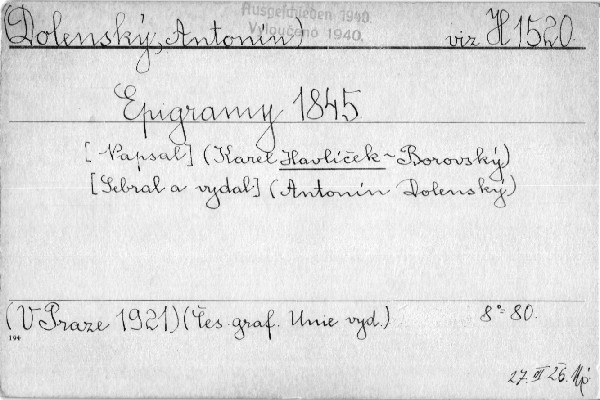 Ausgeschieden 1940.
Vyloučeno 1940.
(Dolenský, Antonín) viz H 1520.
Epigramy 1845
[Napsal] (Karel Havlíček-Borovský)
[Sebral a vydal] (Antonín Dolenský)
(V Praze 1921) (Čes. graf. Unie vyd.) 8°- 80.
194
27. 26.